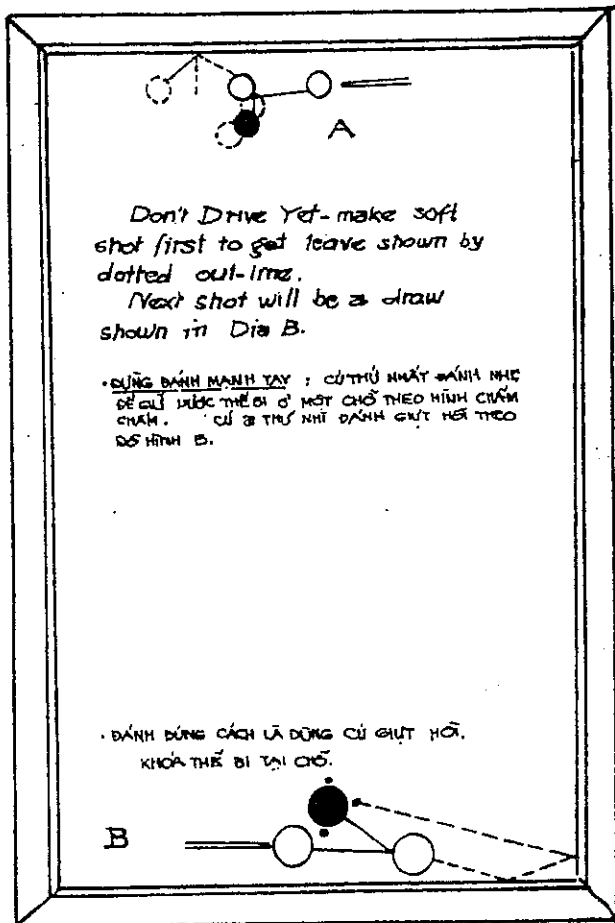 A
Don't Drive Yet - make soft
shot first to get leave shown by
dotted out-line.
Next shot will be a draw
shown in Dia B.
• ĐỪNG ĐÁNH MẠNH TAY : CÚ THỨ NHẤT ĐÁNH NHẸ
ĐỂ GIỮ ĐƯỢC THẾ BI Ở MỘT CHỖ THEO HÌNH CHẤM
CHẤM. CÚ THỨ NHÌ ĐÁNH GIỰT HỒI THEO
ĐỒ HÌNH B.
• ĐÁNH ĐÚNG CÁCH LÀ DÙNG CÚ GIỰT HỒI.
KHÓA THẾ BI TẠI CHỖ.
B